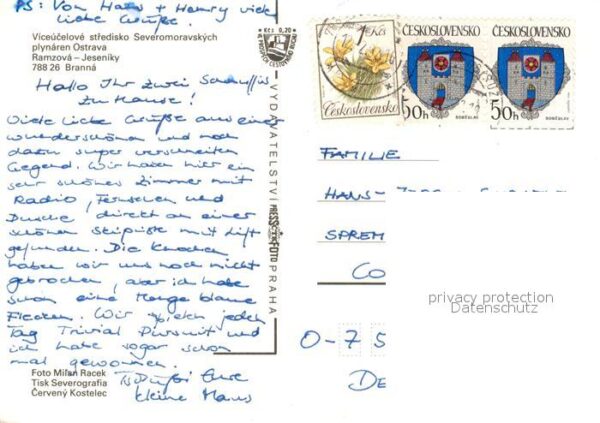 PS: Von Hans + Henry viele
liebe Grüße.
Víceúčelové středisko Severomoravských
plynáren Ostrava
Ramzová – Jeseníky
788 26 Branná
Hallo Ihr zwei
zu Hause!
Viele liebe Grüße aus einer
wunderschönen und noch
dazu super verschneiten
Gegend. Wir haben hier ein
sehr schönes Zimmer mit
Radio, Fernsehen und
Dusche, direkt an einer
schönen Skipiste mit Lift
gefunden. Die Knochen
haben wir uns noch nicht
gebrochen, aber ich habe
schon eine Menge blaue
Flecken. Wir spielen jeden
Tag Trivial Pursuit und
ich habe sogar schon
mal gewonnen.
Tschüßi Eure
kleine Maus
Foto Milan Racek
Tisk Severografia
Červený Kostelec
Kčs 0,20
VYDAVATELSTVÍ PRESSFOTO PRAHA
1 Kčs
Československo
ČESKOSLOVENSKO
50h
SOBĚSLAV
ČESKOSLOVENSKO
50h
SOBĚSLAV
FAMILIE
HANS-
SPREM
CO
O-75
DE
privacy protection
Datenschutz